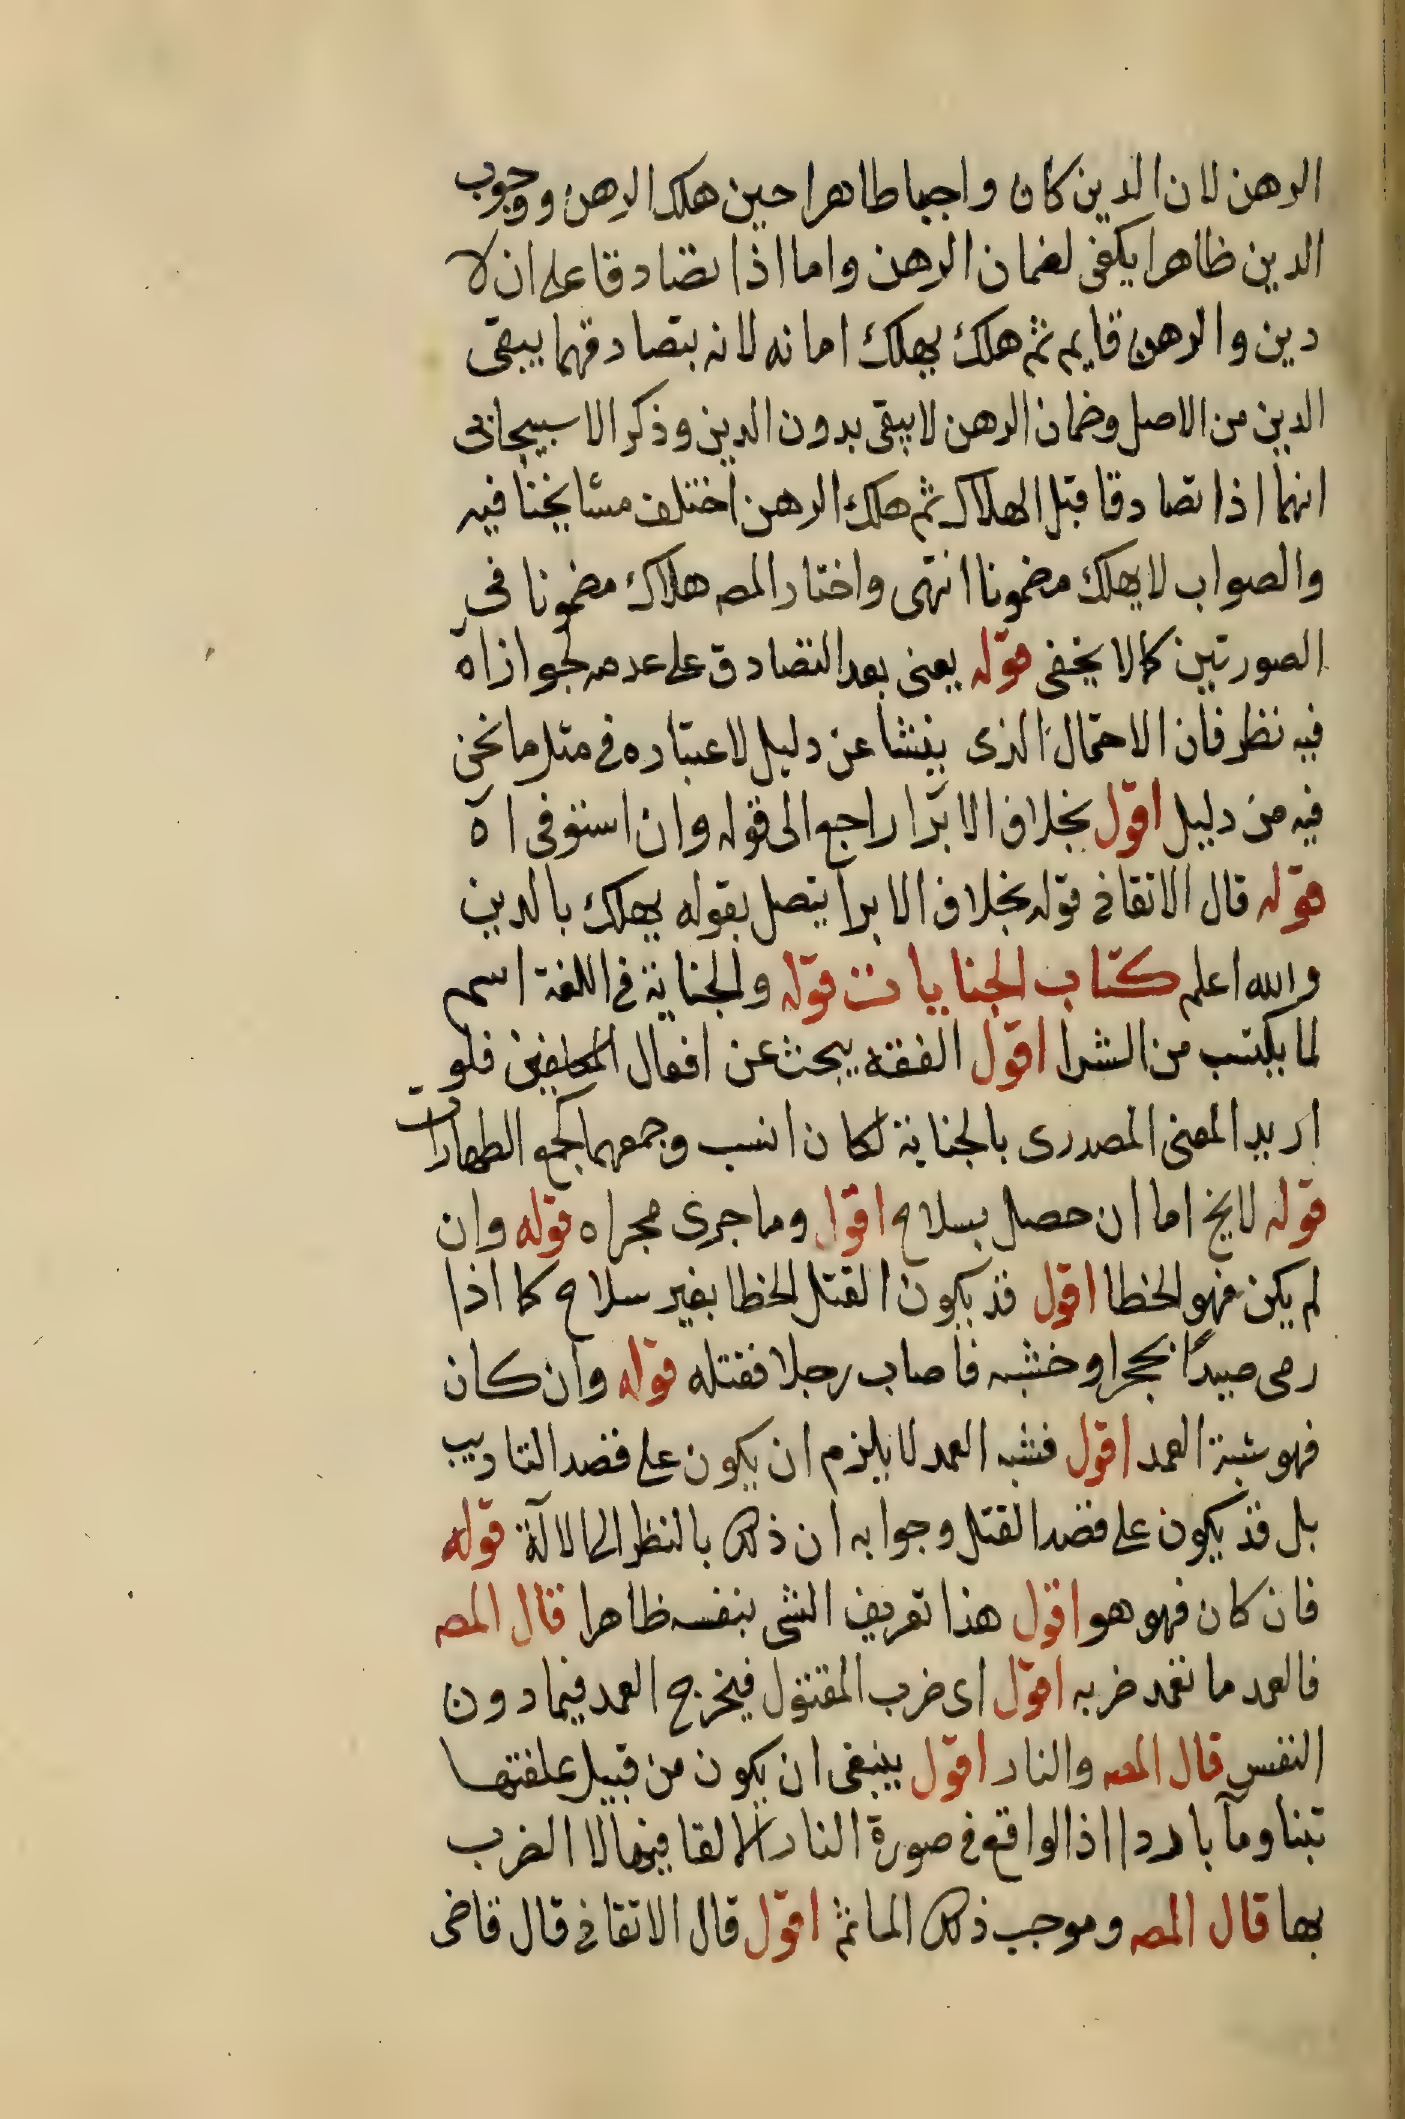 الرهن لان الدين كان واجبا ظاهرا حين هلك الرهن ووجوب
الدين ظاهرا يكفى لضمان الرهن واما اذا تصادقا على ان لا
دين والرهن قايم ثم هلك يهلك امانه لانه بتصادقهما يبقى
الدين من الاصل وضمان الرهن لا يبقى بدون الدين وذكر الاسبيجابى
انهما اذا تصادقا قبل الهلاك ثم هلك الرهن اختلف مشايخنا فيه
والصواب لا يهلك مضمونا انتهى واختار المصه هلاكه مضمونا فى
الصورتين كما لا يخفى قوله يعنى بعد التصادق على عدمه لجواز اه
فيه نظر فان الاحتمال الذى ينشا عن دليل لا عتباره فى مثل ما نحن
فيه من دليل اقول بخلاف الابرا راجع الى قوله وان استوفى اه
قوله قال الاتقانى قوله بخلاف الابرا يتصل بقوله يهلك بالدين
والله اعلم كتاب الجنايات قوله والجناية فى اللغة اسم
لما يكتسب من الشر اقول الفقه يبحث عن افعال المكلفين فلو
اريد المعنى المصدرى بالجناية لكان انسب وجمعهما كجمع الطهارات
قوله لا يخ اما ان حصل بسلاح اقول وما جرى مجراه قوله وان
لم يكن فهو الخطا اقول قد يكون القتل الخطا بغير سلاح كما اذا
رمى صيدا بحجر او خشبه فاصاب رجلا فقتله قوله وان كان
فهو شبة العمد اقول فشبه العمد لا يلزم ان يكون على قصد التاديب
بل قد يكون على قصد القتل وجوابه ان ذلك بالنظر الى الالة قوله
فان كان فهو هو اقول هذا تعريف الشى بنفسه ظاهرا قال المصه
فالعمد ما تعمد ضربه اقول اى ضرب المقتول فيخرج العمد فيما دون
النفس قال المصه والنار اقول ينبغى ان يكون من قبيل علفتها
تبنا ومآ باردا اذ الواقع فى صورة النار الالقا فيها لا الضرب
بها قال المصه وموجب ذلك الماثم اقول قال الاتقانى قال قاضى